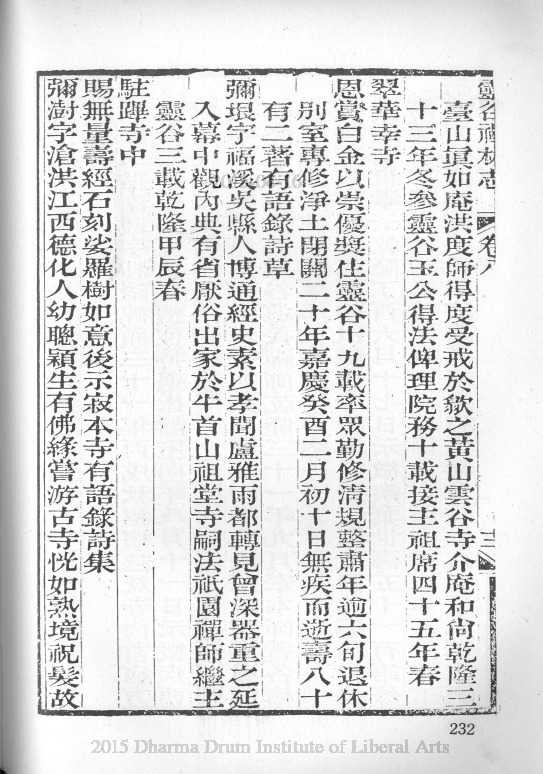 靈谷禪林志 卷八 十二
臺山眞如庵洪度師得度受戒於歙之黃山雲谷寺介庵和尙乾隆三
十三年冬參靈谷玉公得法俾理院務十載接主祖席四十五年春
翠華幸寺
恩賞白金以崇優獎住靈谷十九載率眾勤修清規整肅年逾六旬退休
別室專修淨土閉關二十年嘉慶癸酉二月初十日無疾而逝壽八十
有二著有語錄詩草
彌垠字福溪吳縣人博通經史素以孝聞盧雅雨都轉見曾深器重之延
入幕中觀內典有省厭俗出家於牛首山祖堂寺嗣法祇園禪師繼主
靈谷三載乾隆甲辰春
駐蹕寺中
賜無量壽經石刻娑羅樹如意後示寂本寺有語錄詩集
彌澍字滄洪江西德化人幼聰穎生有佛緣嘗游古寺恍如熟境祝髮故
232
2015 Dharma Drum Institute of Liberal Arts